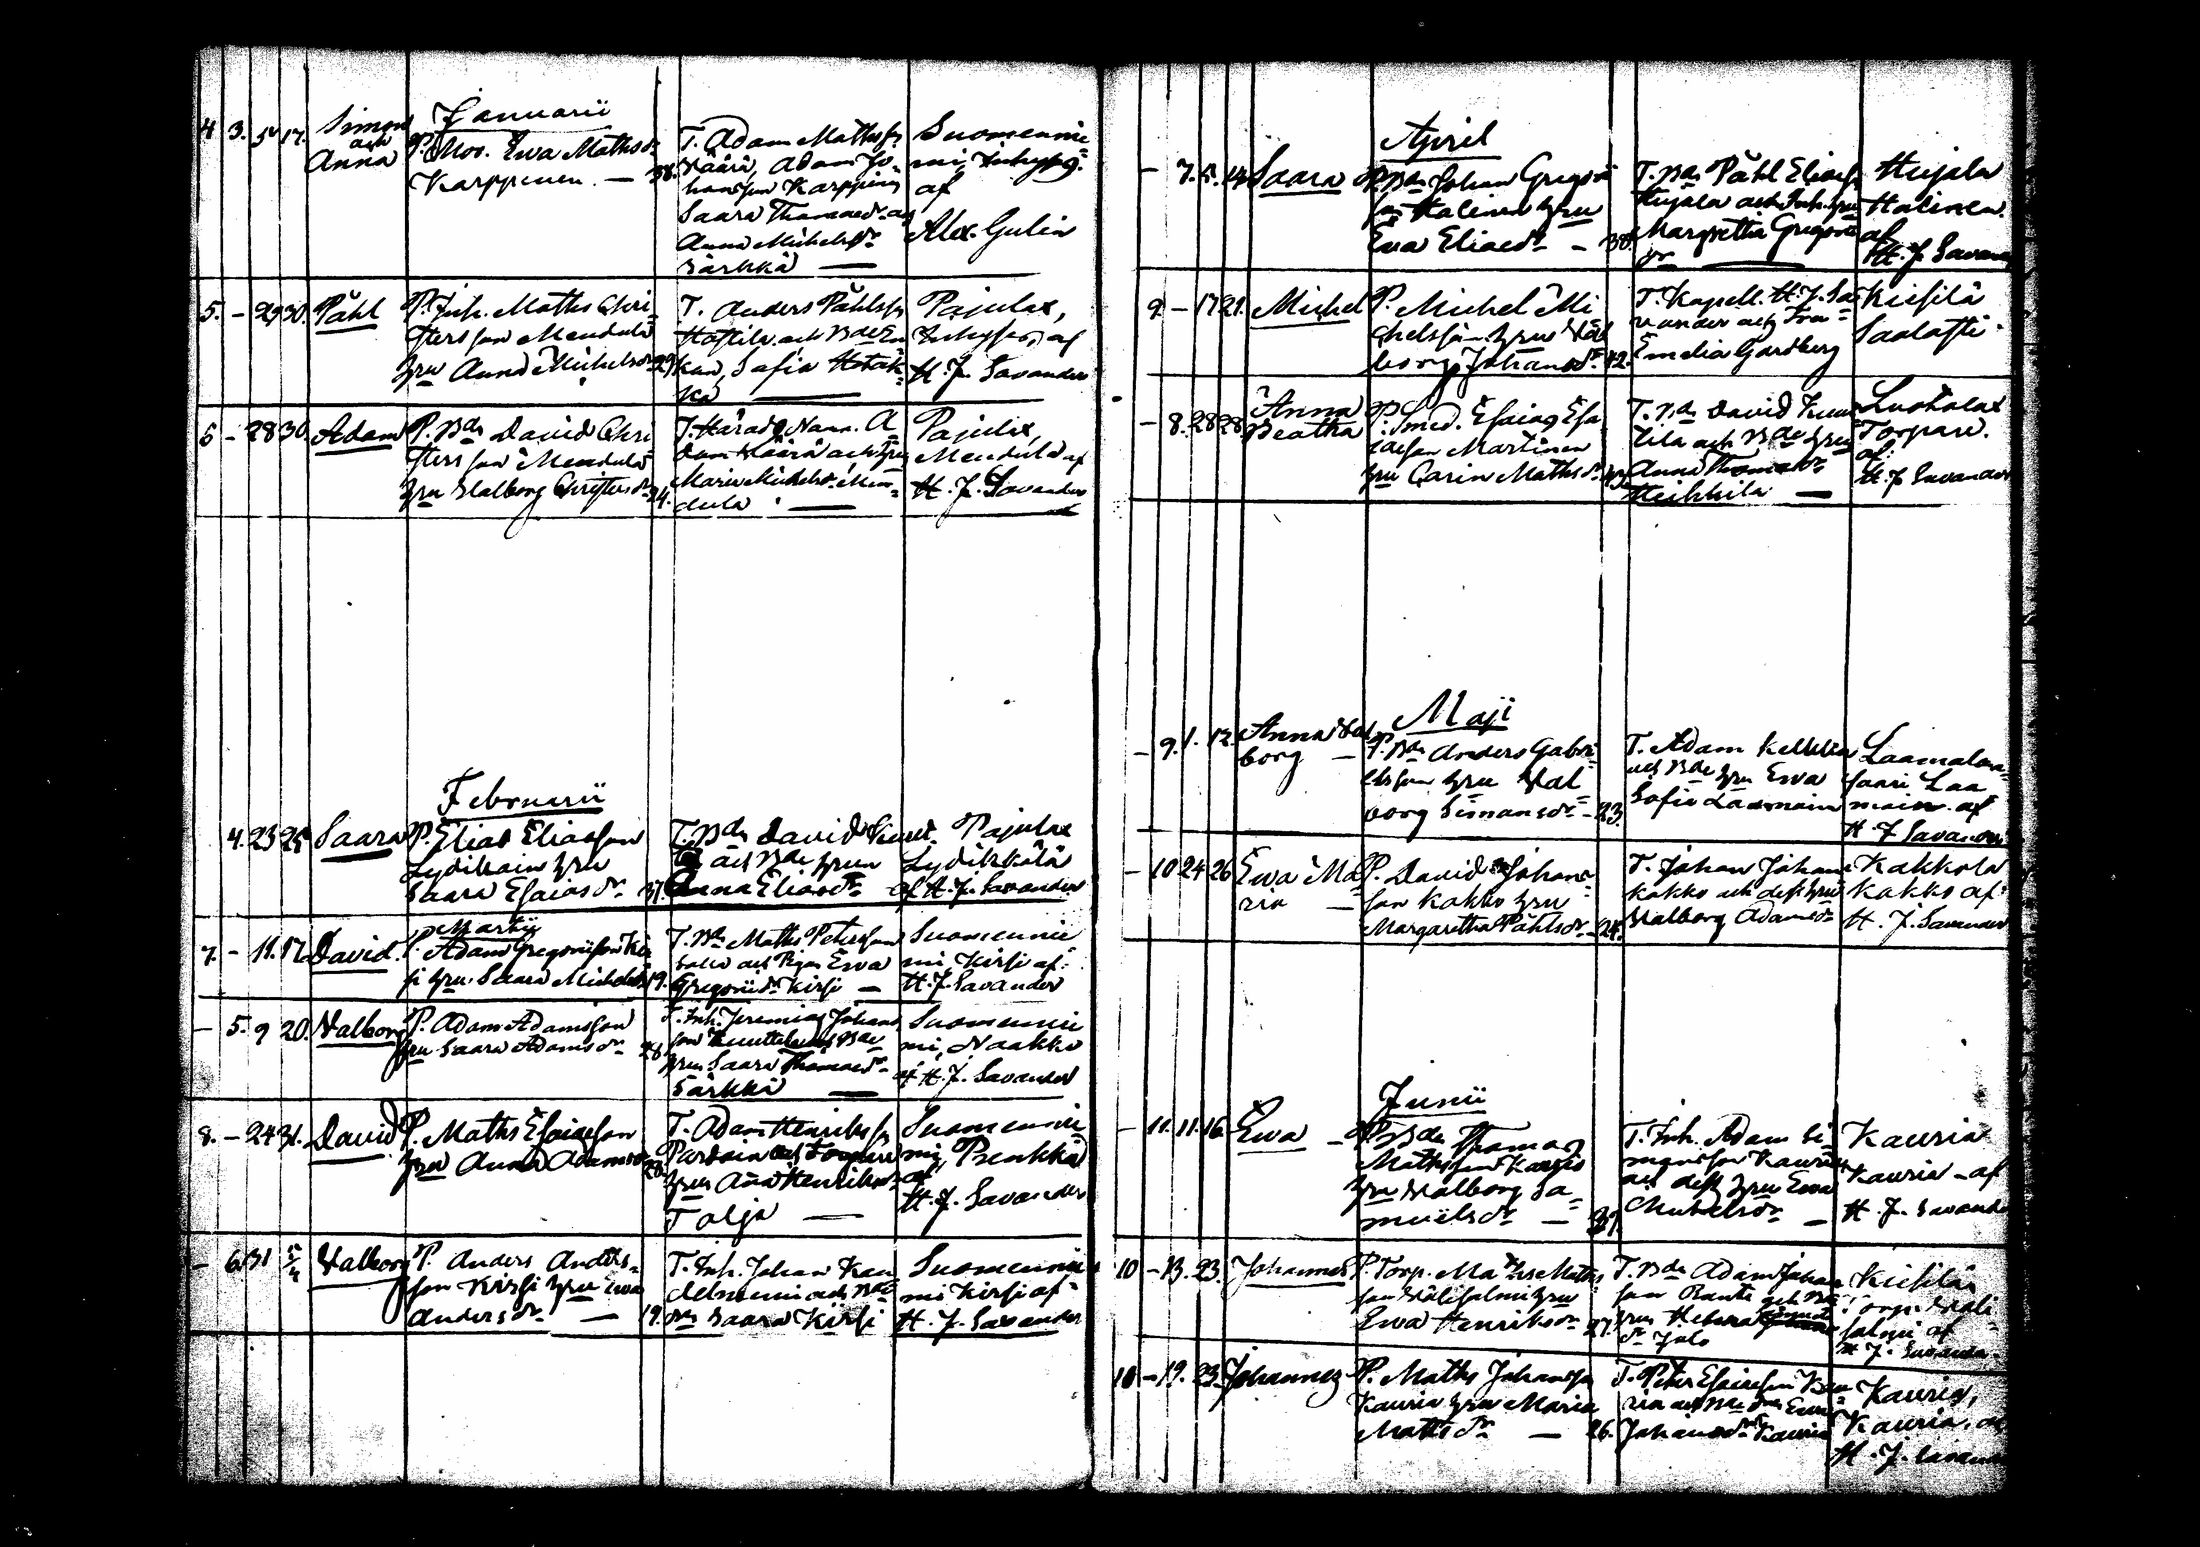 Januarii
4. 3. 5. 17. Simon
och
Anna
P. Mor. Ewa Mathsdr
Karppinen. — 38.
T. Adam Mathsss
Väärä, Adam Jo-
hansson Karppinen
Saara Thomaedr och
Anna Michelsdr
Särkkä —
Suomennie-
mi, Inhyses.
af
Alex. Gulin
5. - 29 30. Påhl
P. Inh. Maths Chri-
stersson Mendula
hru Anna Michelsdr 29.
T. Anders Påhlsss
och Bde
Sofia
Pajulax,
Inhyses, af
H. J. Savander
6 - 28 30. Adam
P. Bdn David Chri-
stersson Mendula
hru Walborg Christersdr 24.
T. Härads Nämn. A-
dam Väärä och hru
Maria Michelsdr Men-
dula —
Pajulax,
Mendula af
H. J. Savander
Februarii
4. 23 25. Saara
P. Elias Eliasson
Lydikain hru
Saara Esaiasdr 37.
T. Bdn David
och Bde hrun
Anna Eliaedr
Pajulax
Lydikkälä
af H. J. Savander
Martii
7. - 11. 17. David
P. Adam Gregoriisson Kir-
si hru. Saara Michelsdr 19.
T. Bdn Maths Petersson
och Pigan Ewa
Gregoriidr Kirsi —
Suomennie
mi Kirsi af
H. J. Savander
- 5. 9 20. Walborg
P. Adam Adamsson
hru Saara Adamsdr 28.
T. Inh. Jeremias Johans
son och Bde
hrun Saara Thomaedr
Särkkä —
Suomennie
mi, Naakko
af H. J. Savander
8. - 24 31. David
P. Maths Esaiæson
hru Anna Adamsdr 28.
T. Adam Henriksss
Pardain och Torpare
hrun Anna Henriksdr
Talja —
Suomennie
mi, Penkkä
af
H. J. Savander
- 6. 31 5/4 Walborg
P. Anders Anders-
son Kirsi hru Ewa
Andersdr — 19.
T. Inh. Johan Kan
och Bde
Saara Kirsi
Suomennie
mi Kirsi af
H. J. Savander
April
- 7. 5. 14. Saara
P. Bdn Johan Gregorii
son Halinen hru
Ewa Eliaedr — 38.
T. Bdn Påhl Eliaess
Hujala och Inh. hru
Margretha Gregorii
dr —
Hujala
Halinen.
af
H. J. Savander
9 - 17 21. Michel
P. Michel Mi
chelsson hru Wal
borg Johansdr 42.
T. Kapell. H. J. Sa-
vander och Fru
Emelia Gardberg
Kiesilä
Saalasti
- 8. 28 28 Anna
Beatha
P. Smed. Esaias Esa
iaeson Martinen
hru Carin Mathsdr
T. Bdn David
och Bde hru
Anna Thomaedr
Heikkilä —
Luotolax
Torpare.
af:
H. J. Savander
Maji
- 9. 1. 12. Anna Wal
borg —
P. Bdn Anders Gabri-
elsson hru Wal
borg Simonsdr - 23.
T. Adam
och Bde hru Ewa
Sofia Laamain
Laamalan-
saari Laa
main. af
H. J. Savander
- 10 24 26 Ewa Ma-
ria —
P. David Johans-
son Kakko hru
Margaretha Påhlsdr 24.
T. Johan Johans
Kakko och dess hru
Walborg Adamsdr
Kakkola
Kakko af
H. J. Savander
Junii
- 11. 11. 16. Ewa —
P. Bdn Thomas
Mathsson Kauria
hru Walborg Sa-
muelsdr — 37.
T. Inh. Adam Si-
monsson Kauria
och dess hru Ewa
Michelsdr —
Kauria
Kauria - af
H. J. Savander
10 - 13. 23. Johannes
P. Torp. Maths Maths
son Välisalmi hru
Ewa Henriksdr 27.
T. Bdn Adam Johan
son Rante och Bde
hru Helena
dr Jalo
Kiesilä
Torp. Väli-
salmi af
H. J. Savander
10 - 19. 23. Johannes
P. Maths Johansson
Kauria hru Maria
Mathsdr — 26.
T. Peter Esaiæson Kau-
ria och Bde hru Ewa
Johansdr Kauria
Kauria,
Kauria, af
H. J. Savander